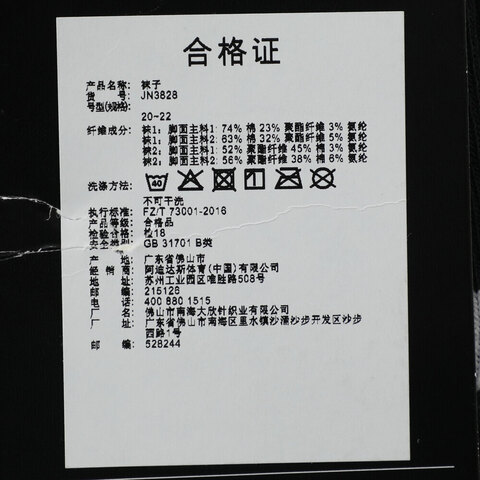 合格证
产品名称: 袜子
货 号: JN3828
号型(规格):
20~22
纤维成分: 袜1: 脚面主料1: 74% 棉 23% 聚酯纤维 3% 氨纶
袜1: 脚面主料2: 63% 棉 32% 聚酯纤维 5% 氨纶
袜2: 脚面主料1: 52% 聚酯纤维 45% 棉 3% 氨纶
袜2: 脚面主料2: 56% 聚酯纤维 38% 棉 6% 氨纶
洗涤方法: 40
不可干洗
执行标准: FZ/T 73001-2016
产品等级: 合格品
检验合格: 检18
安全类别: GB 31701 B类
产 地: 广东省佛山市
经 销 商: 阿迪达斯体育(中国)有限公司
地址: 苏州工业园区唯胜路508号
邮编: 215126
电话: 400 880 1515
厂名: 佛山市南海大欣针织业有限公司
厂 址: 广东省佛山市南海区里水镇沙涌沙步开发区沙步
西路1号
邮 编: 528244